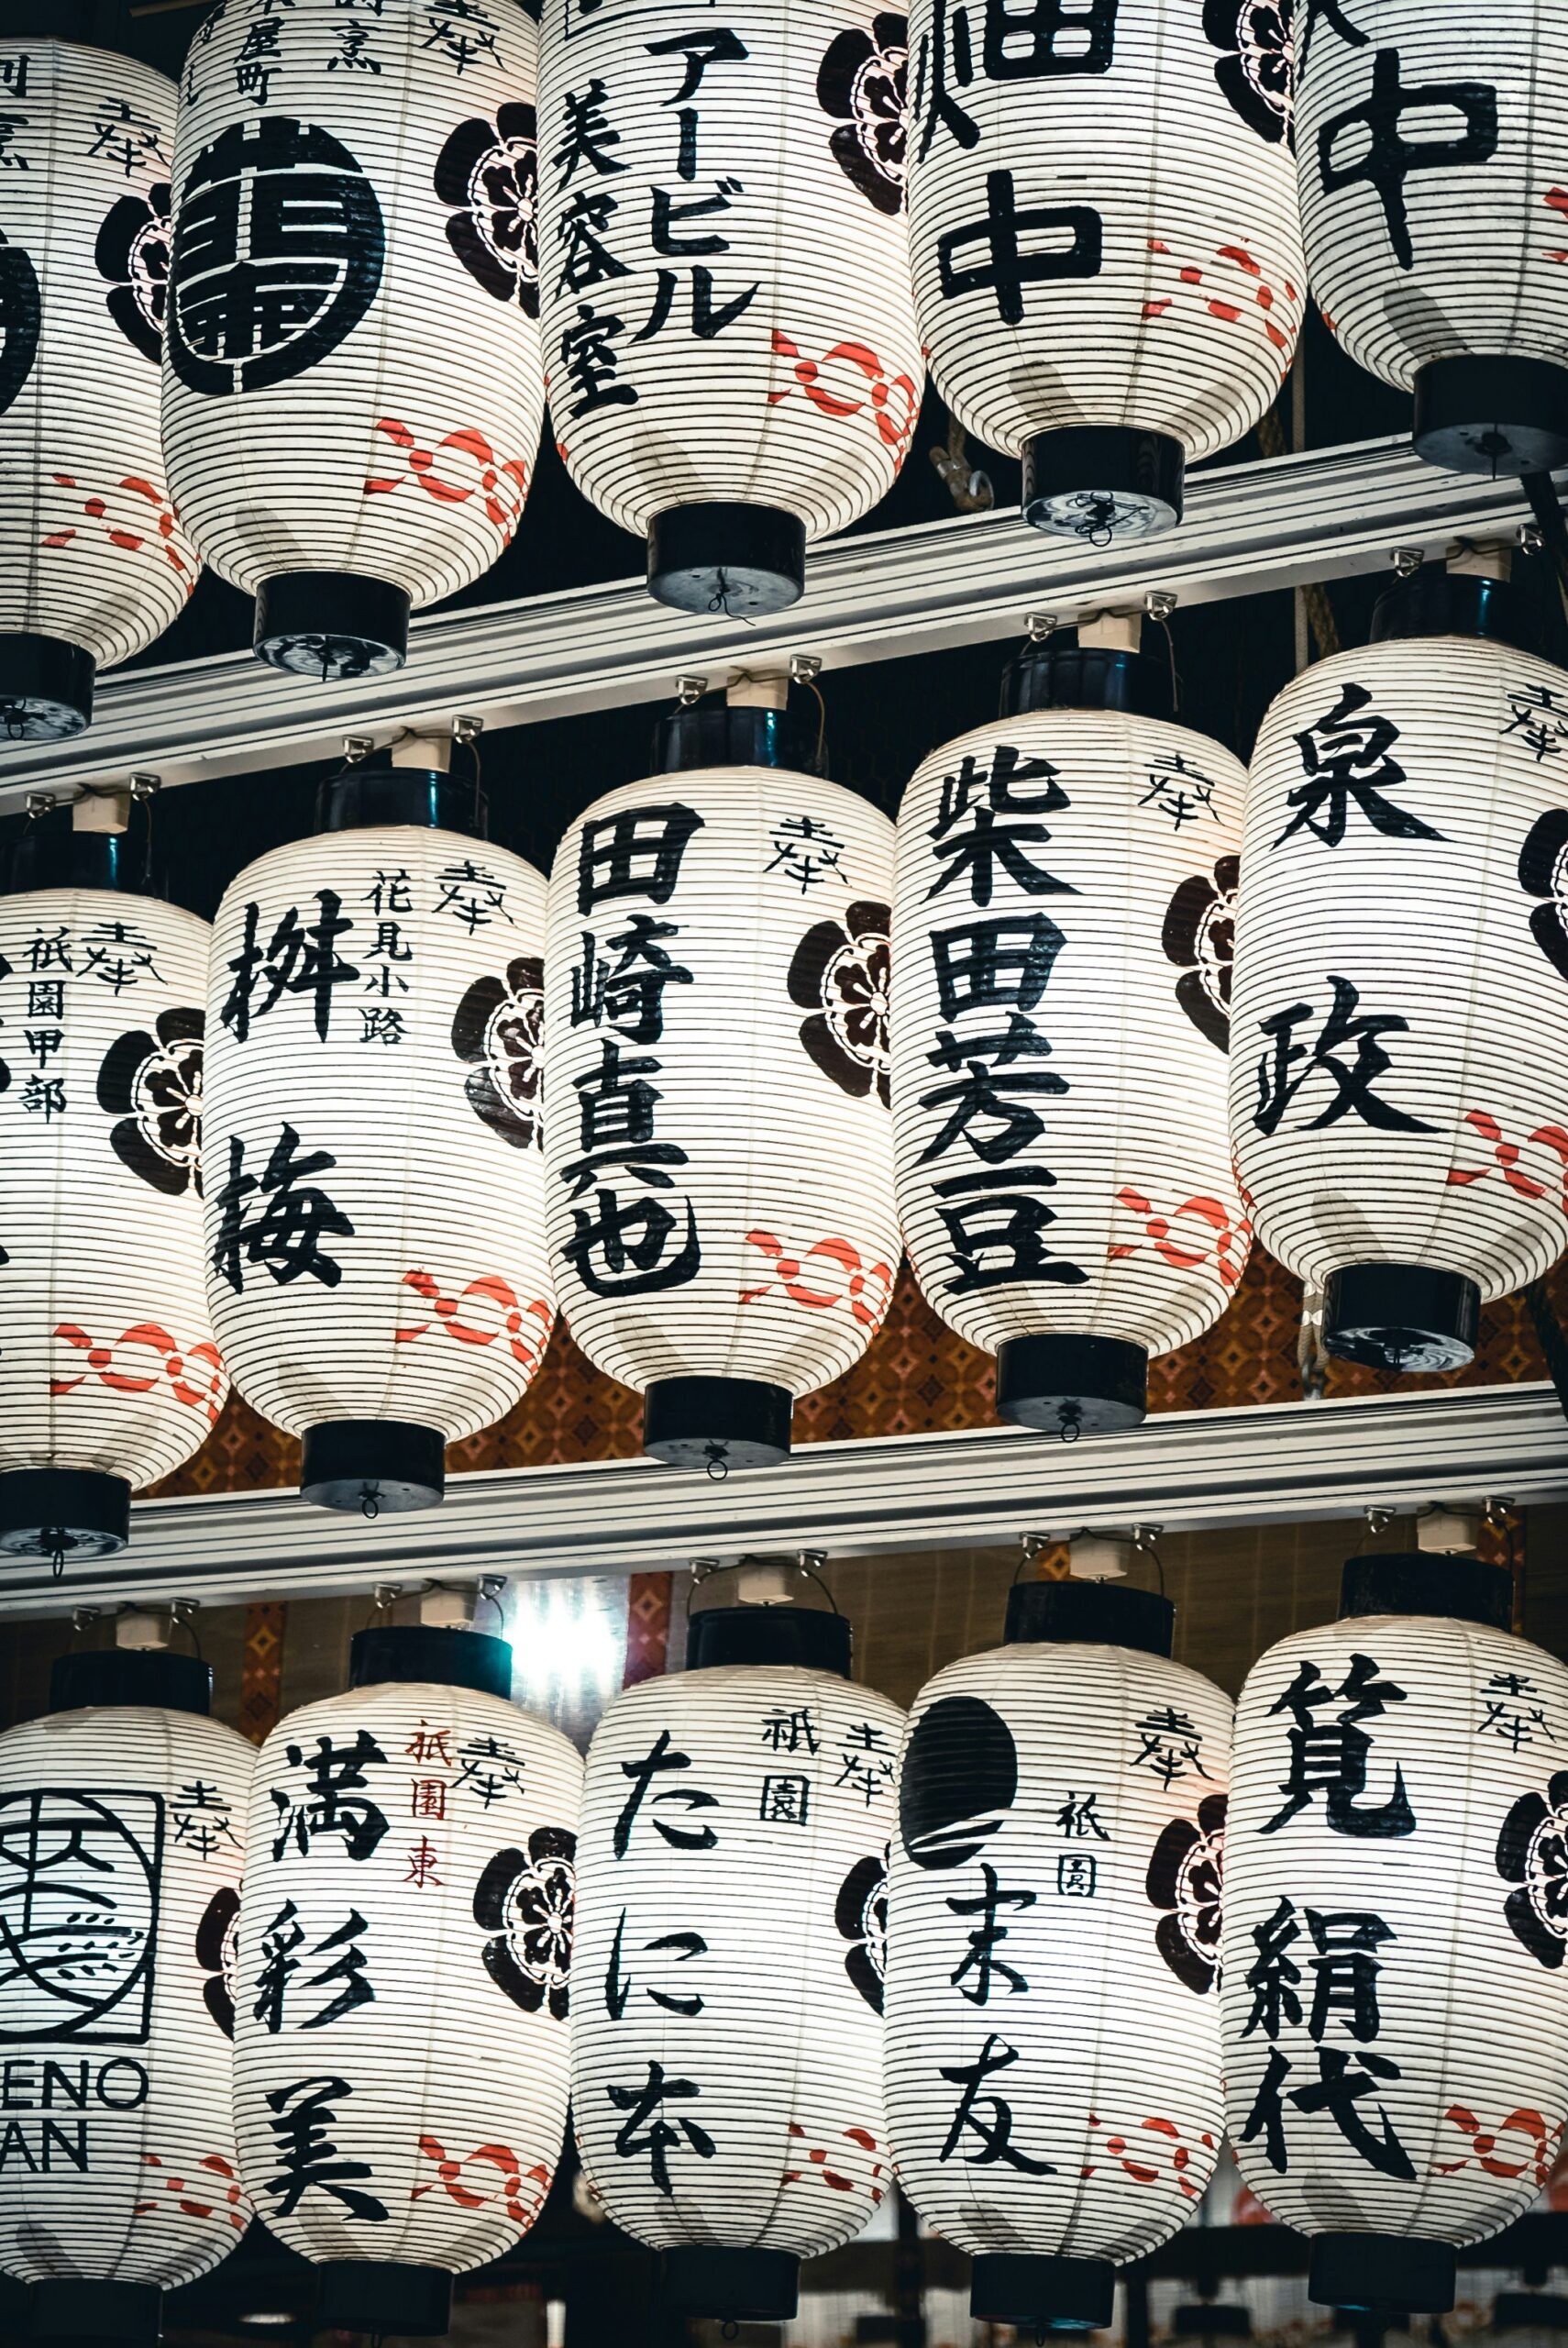 奉
奉
木屋町
アービル
美容室
畑中
中
奉
祇園甲部
奉
花見小路
桝梅
奉
田崎真也
奉
柴田芳豆
奉
泉政
奉
ENO
AN
奉
祇園東
満彩美
奉
祇園
たに本
奉
祇園
末友
奉
筧絹代